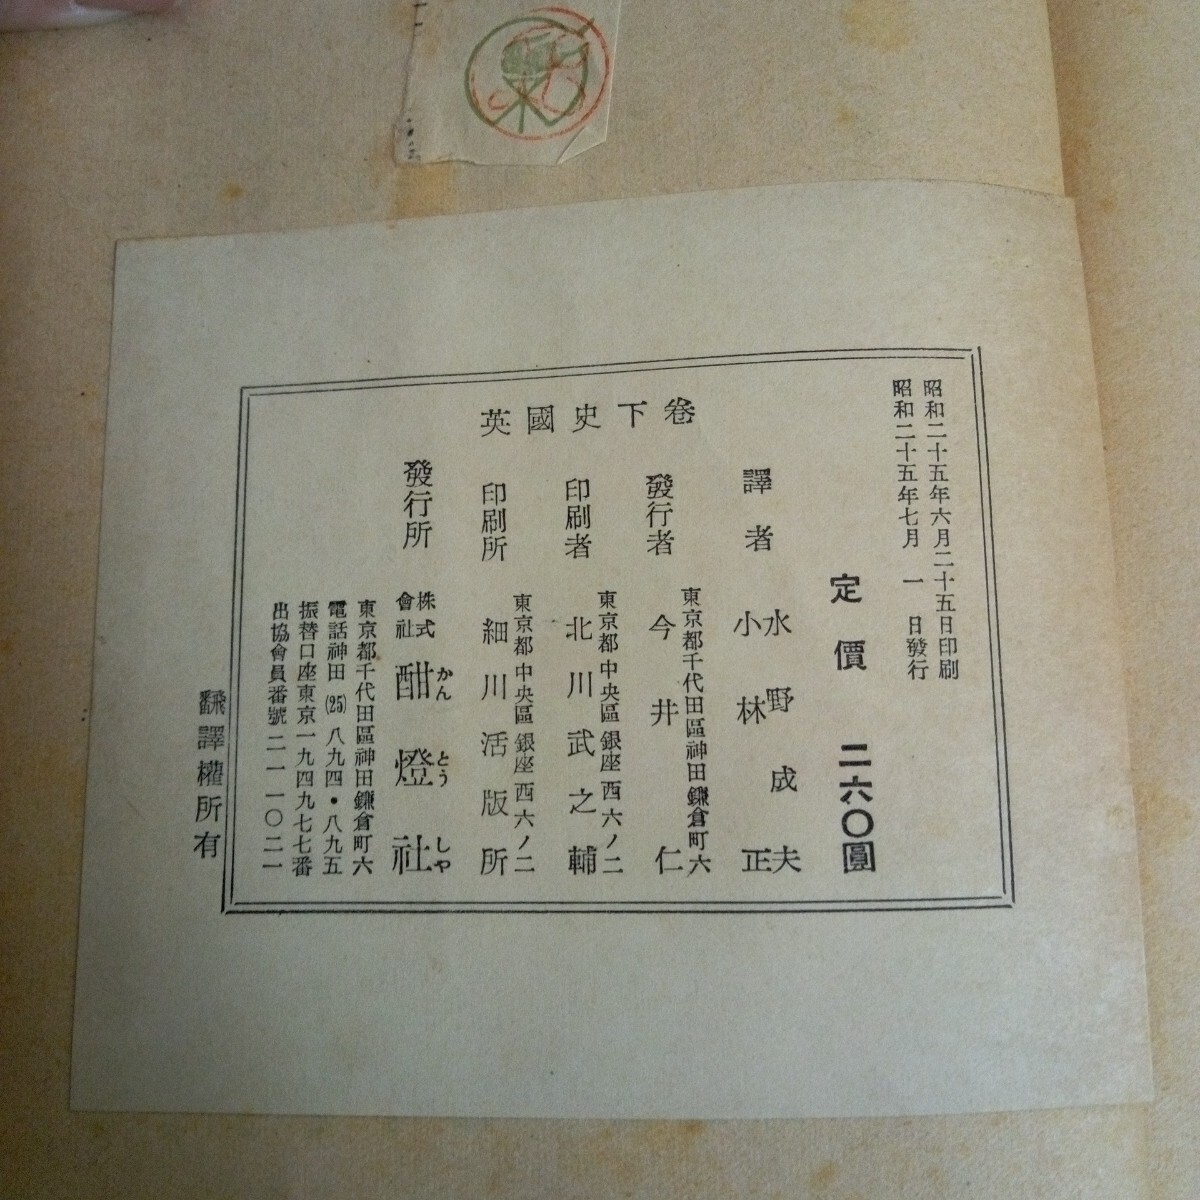 英國史下卷
昭和二十五年六月二十五日印刷
昭和二十五年七月一日發行
定價 二六〇圓
譯者 水野成夫
小林正
東京都千代田區神田鎌倉町六
發行者 今井仁
東京都中央區銀座西六ノ二
印刷者 北川武之輔
東京都中央區銀座西六ノ二
印刷所 細川活版所
發行所 株式會社 酣燈社
かんとうしや
東京都千代田區神田鎌倉町六
電話神田(25)八九四・八九五
振替口座東京一九四九七七番
出協會員番號二一一〇二一
飜譯權所有